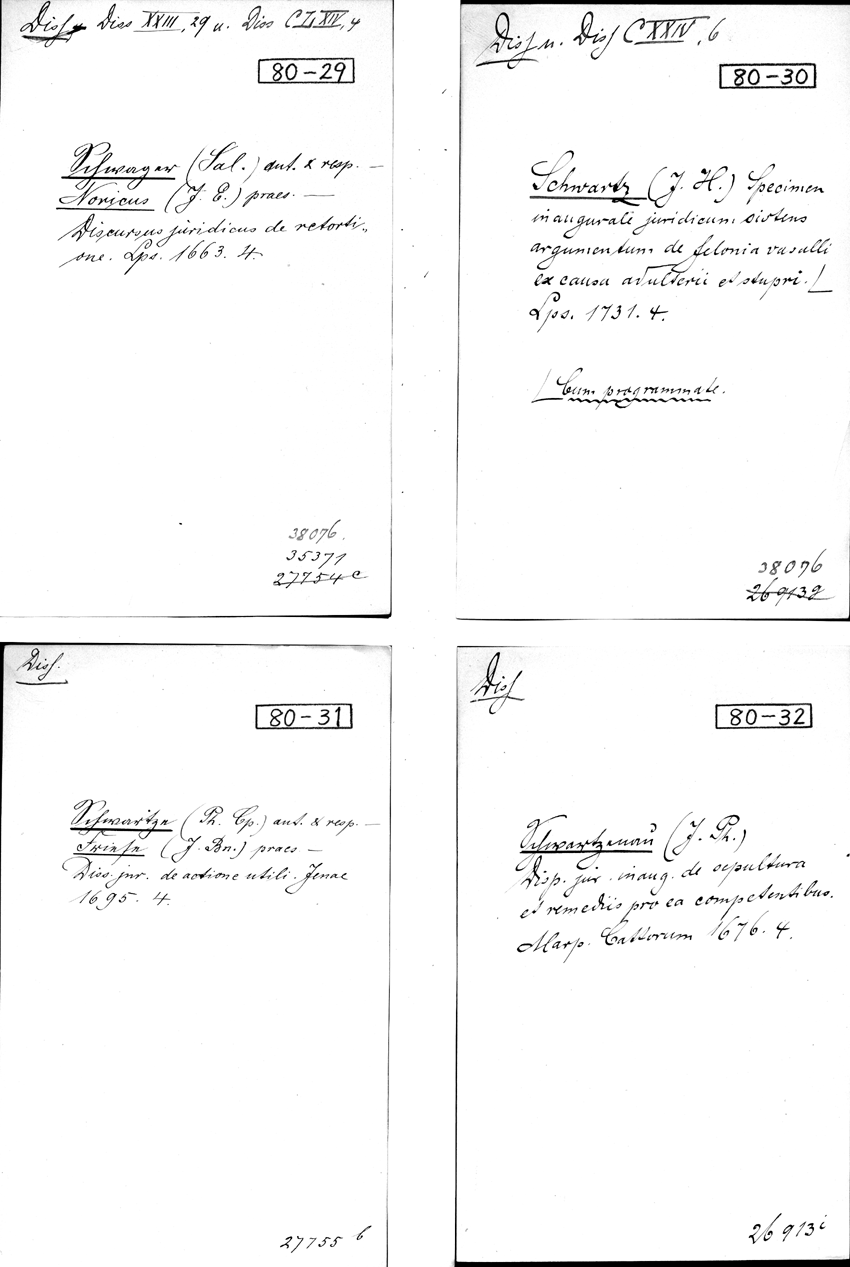 Diss u. Diss XXIII, 29 u. Diss CLXIV, 4
80-29
Schwager (Sal.) aut. & resp. —
Noricus (J. E.) praes. —
Discursus juridicus de retorti-
one. Lps. 1663. 4.
38076.
35371
27754 c
Diss u. Diss CXXIV, 6
80-30
Schwartz (J. H.) Specimen
inaugurale juridicum sistens
argumentum de felonia vasalli
ex causa adulterii et stupri. /
Lps. 1731. 4.
/ Cum programmate.
38076
26913g
Diss.
80-31
Schwartze (Ph. Cp.) aut. & resp. —
Friese (J. Bn.) praes —
Diss. jur. de actione utili. Jenae
1695. 4.
27755 b
Diss
80-32
Schwartzenau (J. Ph.)
Disp. jur. inaug. de sepultura
et remediis pro ea competentibus.
Marp. Cattorum 1676. 4.
26913 i